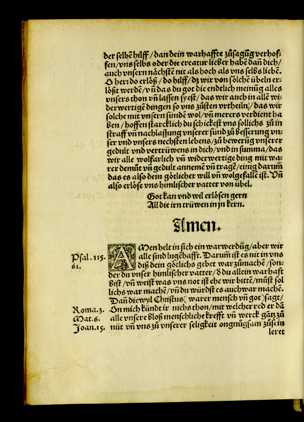 der selbē hilff/ dan dein warhaffte zůsagūg verhof-
fen/ vns selbs oder die creatur lieber habē dañ dich/
auch vnsern nächstē nit als hoch als vns selbs liebē.
O herr do erlöß/ do hilff/ dz wir von solchē übeln er-
lößt werdē/ vñ da s du got die endtlich meinūg alles
vnsers thon vñ lassen seyest/ das wir auch in allē wi-
derwertigē dingen so vns zůsten vrtheiln/ das wir
solche mit vnsern sündē wol/ vñ merers verdient ha-
bē/ hoffen starcklich du schickest vns sollichs zů in
straff vñ nachlassung vnserer sünd zů besserung vn-
ser vnd vnsers nechsten lebens/ zů bewerūg vnserer
gedult vnd vertrüwens in dich/ vnd in summa/ das
wir alle wolfarlich vñ widerwertige ding mit wa-
rer demůt vñ gedult annemē vñ tragē/ einig darum̄
das es also dem götlicher will vñ wolgefallē ist. Vñ
also erlöse vns himlischer vatter von übel.
Got kan vnd wil erlösen gern
All die im trüwen in jm kern.
Amen.
Psal. 115.
61.
AMen helt in sich ein warwerdūg/ aber wir
alle sind lugēhafft. Darum̄ ist es nit in vns
diß dein götlichs gebet war zůmachē/ son-
der du vnser himlischer vatter/ ð du allein warhaft
bist/ vñ weist was vns not ist ehe wir bittē/ můst sol
lichs war machē/ vñ du würdst es auch war machē.
Roma. 3.
Mat. 6.
Joan. 15.
Dañ die wyl Christus/ warer mensch vñ got/ sagt/
On mich kündt ir nichs thon/ mit welcher red er dā
alle vnsere bloß menschliche krefft vñ werck gātz zů
nüt vñ vns zů vnserer seligkeit ongnůgsam zůsein
leret